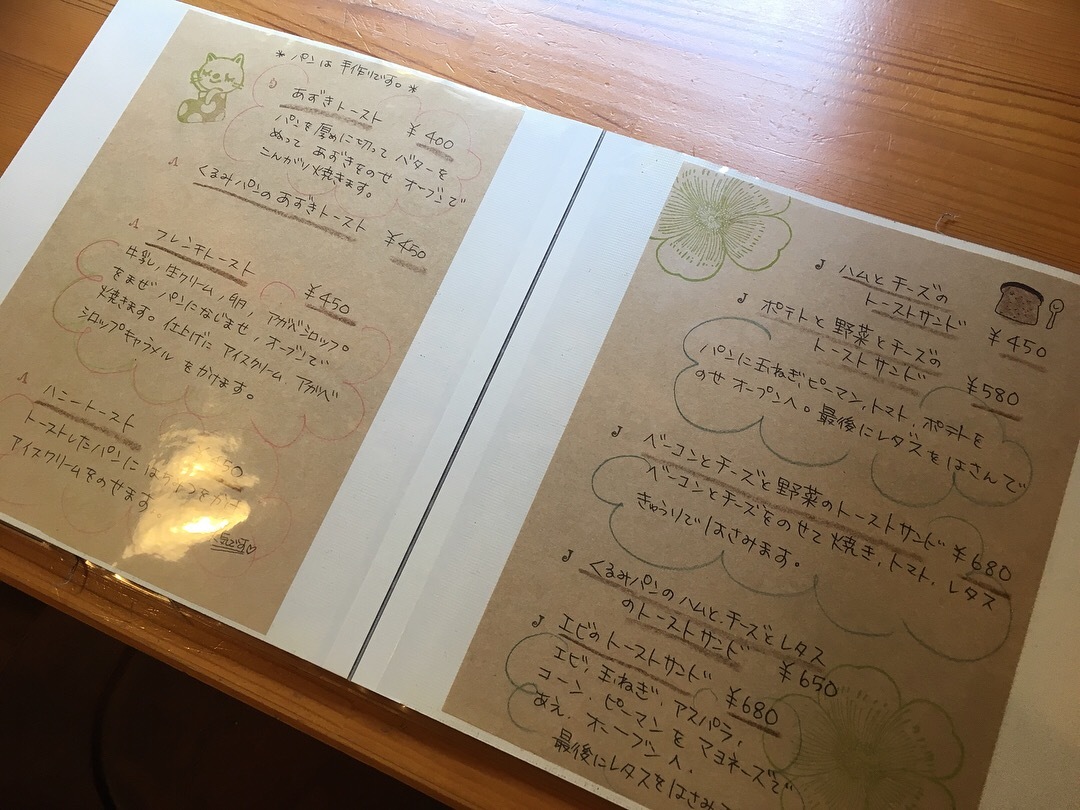 * パンは 手作りです。 *
あずきトースト ¥400
パンを厚めに切って バターを
ぬって あずきをのせ オーブンで
こんがり焼きます。
くるみパンのあずきトースト ¥450
フレンチトースト ¥450
牛乳, 生クリーム, 卵, アガベシロップ。
をまぜ パンになじませ, オーブンで
焼きます。仕上げに アイスクリーム アガベ
シロップキャラメル をかけます。
ハニートースト
トーストしたパンに はちみつをかけ
アイスクリームをのせます。
ハムとチーズの
トーストサンド ¥450
ポテトと野菜とチーズの
トーストサンド ¥580
パンに玉ねぎ,ピーマン,トマト, ポテトを
のせ オーブンへ。最後にレタスをはさんで
ベーコンとチーズと野菜のトーストサンド ¥680
ベーコンとチーズをのせて 焼き, トマト, レタス
きゅうりではさみます。
くるみパンのハムと,チーズとレタス
のトーストサンド ¥650
エビのトーストサンド ¥680
エビ, 玉ねぎ, アスパラ,
コーン, ピーマン を マヨネーズで
あえ, オーブンへ,
最後にレタスをはさみ